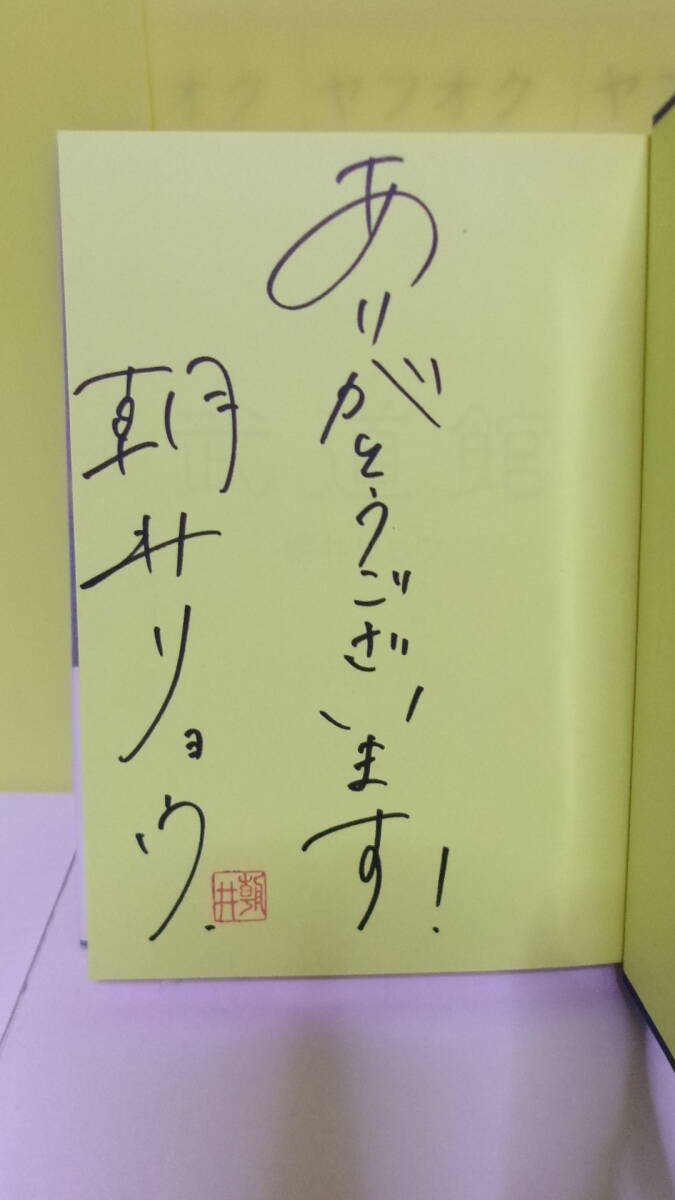 オク ヤフオク ヤフ
ありがとうございます!
朝井リョウ.
朝井
武道館